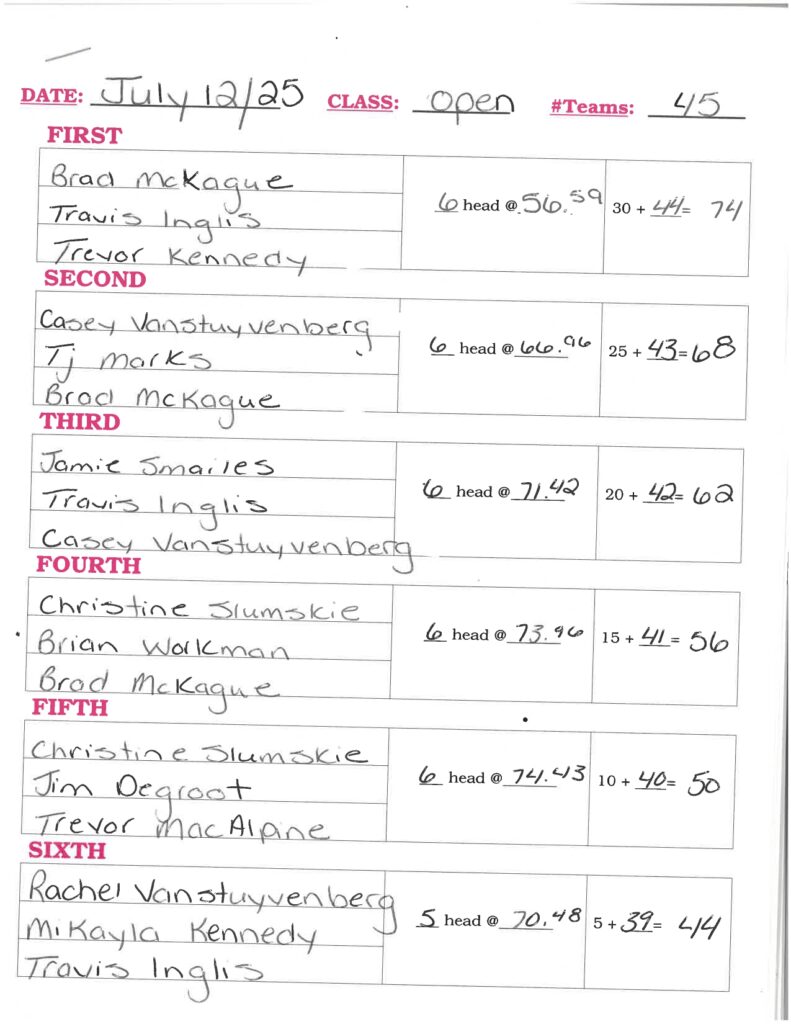 DATE: July 12/25 CLASS: open #Teams: 45
FIRST
Brad McKague
Travis Inglis
Trevor Kennedy
6 head @ 56.59
30 + 44 = 74
SECOND
Casey Vanstuyvenberg
Tj Marks
Brad McKague
6 head @ 66.96
25 + 43 = 68
THIRD
Jamie Smailes
Travis Inglis
Casey Vanstuyvenberg
6 head @ 71.42
20 + 42 = 62
FOURTH
Christine Slumskie
Brian Workman
Brad McKague
6 head @ 73.96
15 + 41 = 56
FIFTH
Christine Slumskie
Jim Degroot
Trevor MacAlpine
6 head @ 74.43
10 + 40 = 50
SIXTH
Rachel Vanstuyvenberg
Mikayla Kennedy
Travis Inglis
5 head @ 70.48
5 + 39 = 44